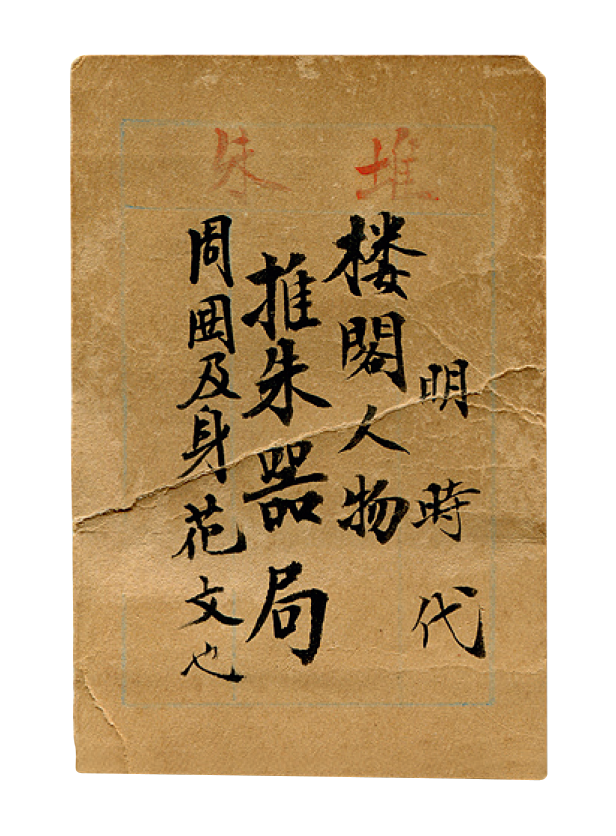 堆朱
明時代
楼閣人物
推朱器局
周囲及身花文也